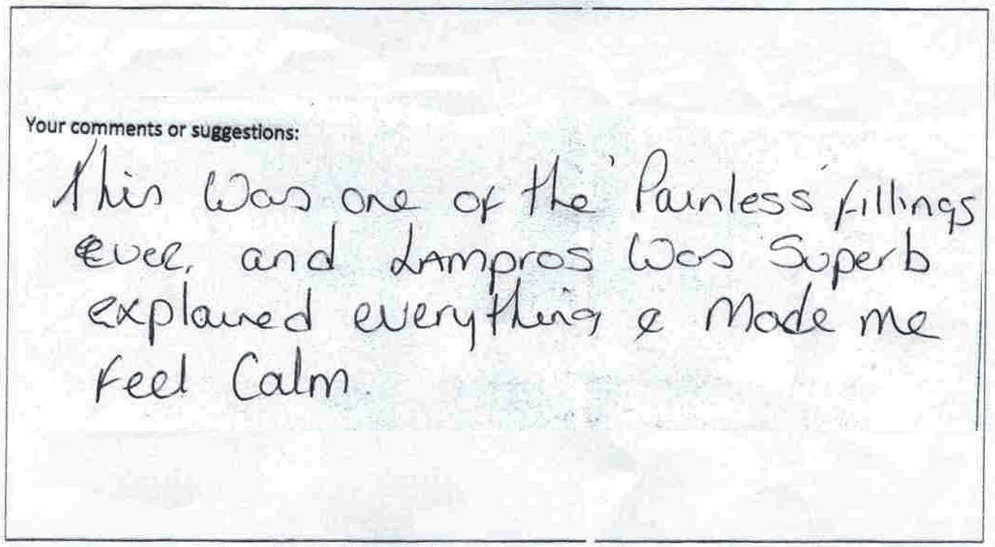 Your comments or suggestions:
This was one of the 'Painless' fillings
ever, and LAmpros was Superb
explained everything & Made me
Feel Calm